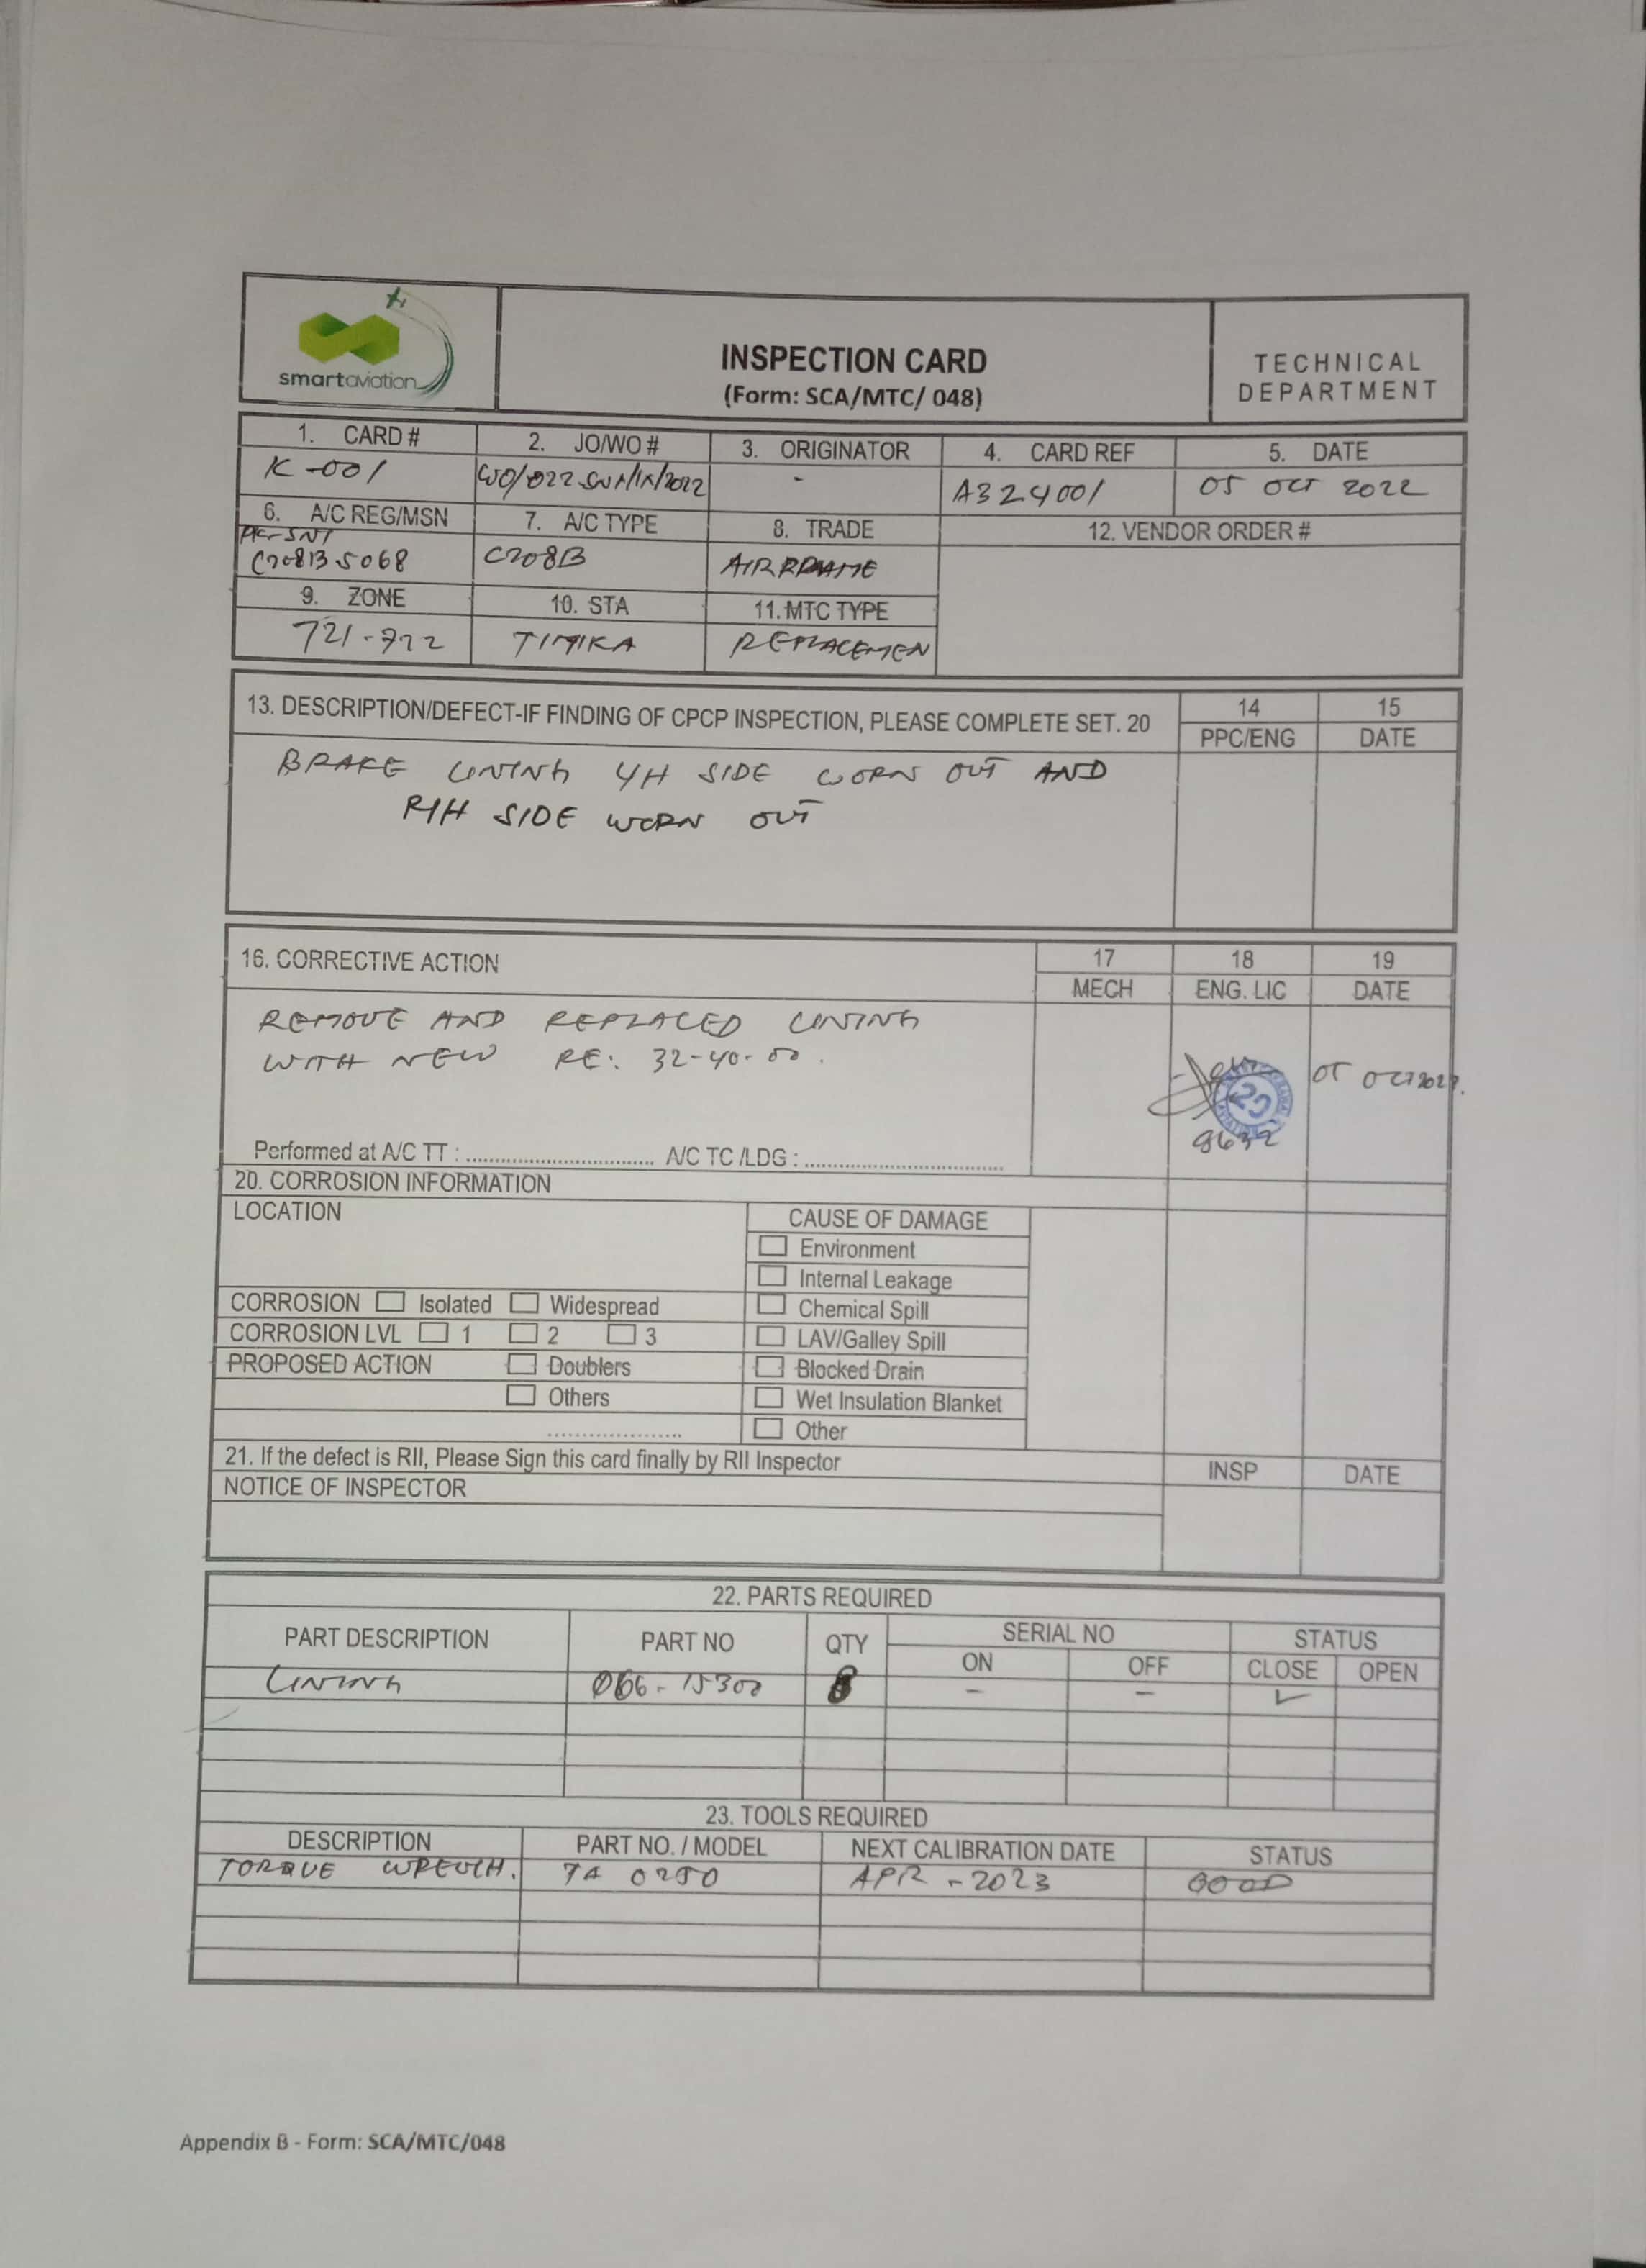 smartaviation
INSPECTION CARD
(Form: SCA/MTC/ 048)
TECHNICAL
DEPARTMENT
1. CARD #
2. JO/WO #
3. ORIGINATOR
4. CARD REF
5. DATE
K-001
-
A324001
05 OCT 2022
6. A/C REG/MSN
7. A/C TYPE
8. TRADE
12. VENDOR ORDER #
PK-SNT
C208B5068
C208B
9. ZONE
10. STA
11. MTC TYPE
721-722
TIMIKA
REPLACEMEN
13. DESCRIPTION/DEFECT-IF FINDING OF CPCP INSPECTION, PLEASE COMPLETE SET. 20
14
15
PPC/ENG
DATE
BRAKE LINING L/H SIDE WORN OUT AND
R/H SIDE WORN OUT
16. CORRECTIVE ACTION
17
18
19
MECH
ENG. LIC
DATE
REMOVE AND REPLACED LINING
WITH NEW RE: 32-40-00.
05 OCT 2022.
20
9632
Performed at A/C TT : ............................... A/C TC /LDG : .................................
20. CORROSION INFORMATION
LOCATION
CAUSE OF DAMAGE
Environment
Internal Leakage
CORROSION Isolated Widespread
Chemical Spill
CORROSION LVL 1 2 3
LAV/Galley Spill
PROPOSED ACTION Doublers
Blocked Drain
Others
Wet Insulation Blanket
......................
Other
21. If the defect is RII, Please Sign this card finally by RII Inspector
INSP
DATE
NOTICE OF INSPECTOR
22. PARTS REQUIRED
PART DESCRIPTION
PART NO
QTY
SERIAL NO
STATUS
ON
OFF
CLOSE
OPEN
LINING
066-15300
8
-
-
✓
23. TOOLS REQUIRED
DESCRIPTION
PART NO. / MODEL
NEXT CALIBRATION DATE
STATUS
TORQUE WRENCH.
TA 0250
APR - 2023
GOOD
Appendix B - Form: SCA/MTC/048